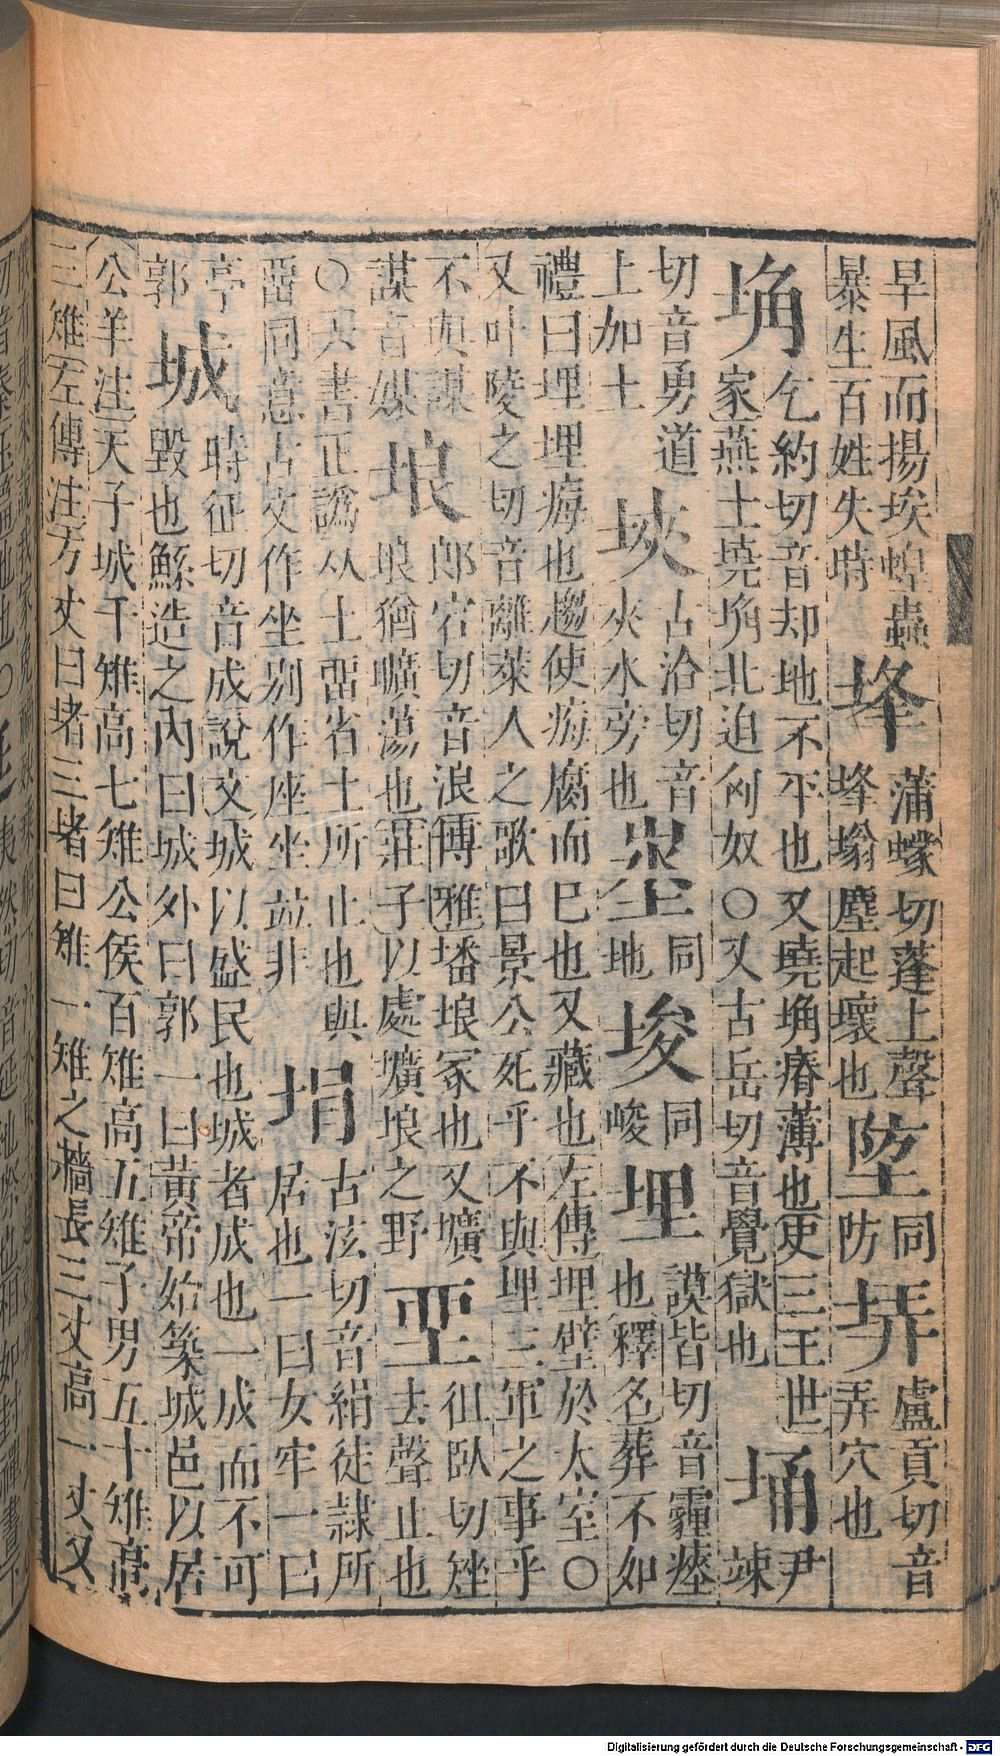 旱風而揚埃蝗蟲暴生百姓失時埄蒲蠓切蓬上聲埄塕塵起壞也埅同防盧貢切音弄穴也
埆乞約切音却地不平也又墝埆瘠薄也史三王世家燕土墝埆北迫匈奴〇又古岳切音覺獄也埇尹竦
切音勇道上加土埉古洽切音夾水旁也埊同地埈同峻埋謨皆切音霾瘞也釋名葬不如
禮曰埋埋痗也趨使痗腐而巳也又藏也左傳埋璧於太室〇又叶陵之切音離萊人之歌曰景公死乎不與埋三軍之事乎
不與謀謀音媒埌郎宕切音浪博雅墦埌冢也又壙埌猶曠蕩也莊子以處壙埌之野徂臥切矬去聲止也
〇六書正譌从土畱省土所止也與畱同意古文作坐别作座㘸竝非埍古泫切音絹徒隷所居也一曰女牢一曰
亭郭城時征切音成說文城以盛民也城者成也一成而不可毀也鯀造之內曰城外曰郭一曰黃帝始築城邑以居
公羊注天子城千雉高七雉公侯百雉高五雉子男五十雉高三雉左傳注方丈曰堵三堵曰雉一雉之牆長三丈高一丈又
Digitalisierung gefördert durch die Deutsche Forschungsgemeinschaft - DFG